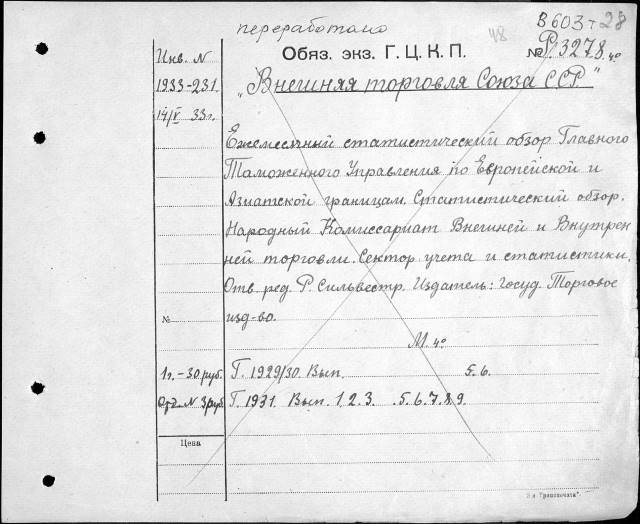 переработано
В603т28
48
Обяз. экз. Г. Ц. К. П.
№ Р.3278.4°
Инв. N
1933-231.
14/V 33г.
"Внешняя торговля Союза ССР."
Ежемесячный статистический обзор Главного
Таможенного Управления по Европейской и
Азиатской границам. Статистический обзор.
Народный Комиссариат Внешней и Внутрен
ней торговли. Сектор учета и статистики.
Отв. ред. Р. Сильвестр. Издатель: Госуд. Торговое
№
изд-во.
М. 4°
1 г. - 30 руб.
Г. 1929/30. Вып. 5. 6.
Отд. N 3 руб.
Г. 1931. Вып. 1. 2. 3. .5. 6. 7. 8. 9.
Цена